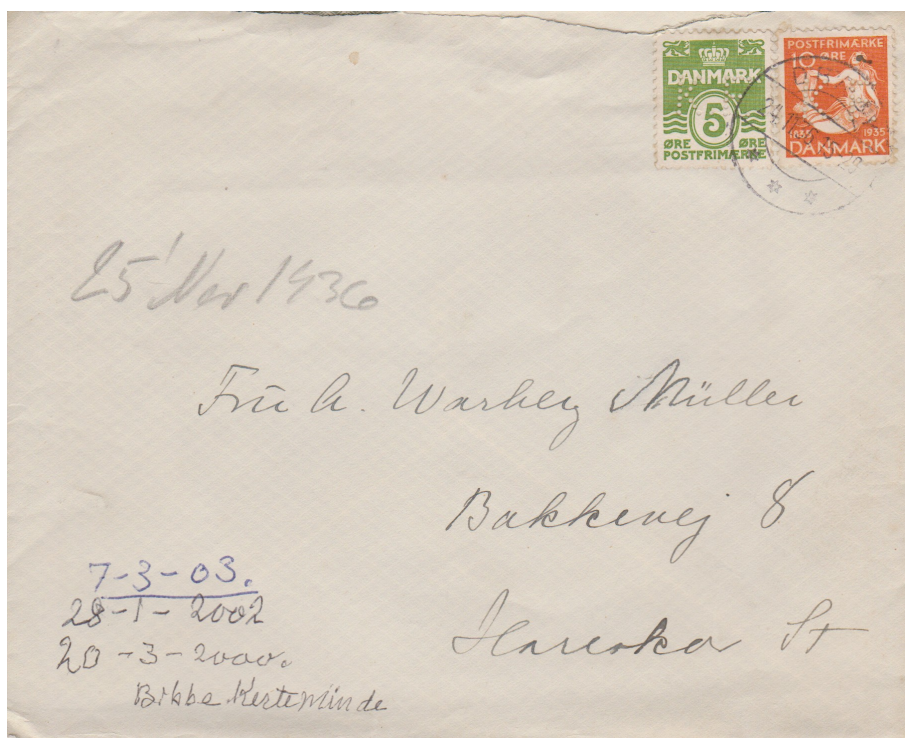 DANMARK
5
ØRE ØRE
POSTFRIMÆRKE
POSTFRIMÆRKE
10 ØRE
1835 1935
DANMARK
25 Nov 1936
Fru A. Warberg Müller
Bakkevej 8
Hareskov St
7-3-03.
28-1-2002
20-3-2000.
Bibbe Kerteminde